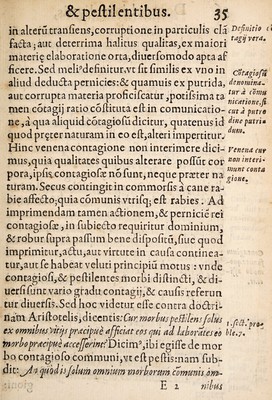 & pestilentibus. 35
in alterũ transiens, corruptione in particulis clã
facta; aut deterrima halitus qualitas, ex maiori
materię elaboratione orta, diuersomodo apta af
ficere. Sed meliꝰ definitur. vt sit similis ex vno in
aliud deducta pernicies: & quamuis ex putrida,
aut corrupta materia proficiscatur, potissima ta
men cõtagij ratio cõstituta est in comunicatio-
ne, à qua aliquid cótagiosũ dicitur, quatenus id
quod pręter naturam in eo est, alteri impertitur.
Hinc venena contagione non interimere dici-
mus, quia qualitates quibus alterare possũt cor
pora, ipsis contagiosæ nõ sunt, neque præter na
turam. Secus contingit in commorsis à cane ra-
bie affecto; quia cõmunis vtrisq; est rabies. Ad
imprimendam tamen actionem, & perniciẽ rei
contagiosæ, in subiecto requiritur dominium,
& robur supra passum bene dispositũ, siue quod
imprimitur, actu, aut virtute in causa continea-
tur, aut se habeat veluti principiũ motus: vnde
contagiosi, & pestilentes morbi distincti, & di-
uersi sunt vario gradu contagij, & causis referun
tur diuersis. Sed hoc videtur esse contra doctri-
nam Aristotelis, dicentis: Cur morbus pestilens solus
ex omnibus vitijs præcipuè afficiat eos qui ad laborátes eo
morbo præcipuè accesserint? Dicimꝰ, ibi egisse de mor
bo contagioso communi, vt est pestis: nam sub-
dit: An quod is solum omnium morborum cómunis om-
E 2 nibus
Definitio cõ
tagij vera.
Cõtagiosũ
denomina-
tur à cõmu
nicatione, si
cut à putre
dine putri-
dum.
Venena cur
non interi-
munt conta
gione.
1. sect. pro-
ble. 7.